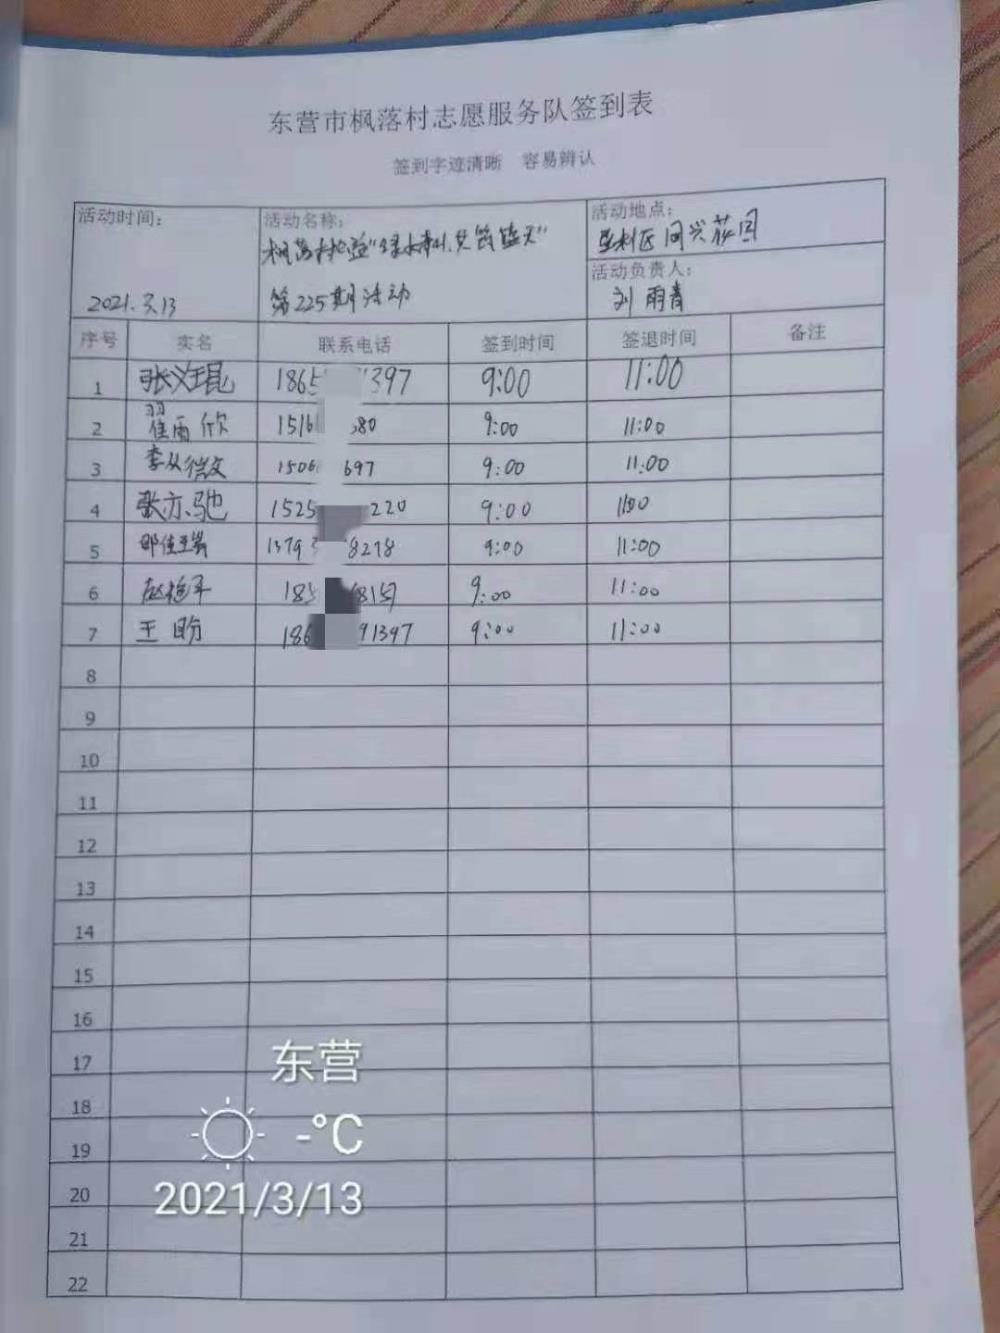 东营市枫落村志愿服务队签到表
签到字迹清晰 容易辨认
活动时间: 活动名称: 活动地点:
枫落村 "绿水青山,共筑蓝天" 垦利区同兴花园
活动负责人:
2021.3.13 第225期活动 刘雨青
序号 实名 联系电话 签到时间 签退时间 备注
1 张义琨 1865 397 9:00 11:00
2 翟雨欣 1516 80 9:00 11:00
3 李从微文 1506 697 9:00 11:00
4 张亦驰 1525 220 9:00 1100
5 1379 8278 9:00 11:00
6 185 815 9:00 11:00
7 王盼 186 91397 9:00 11:00
8
9
10
11
12
13
14
15
16
17
18
19
20
21
22
东营
-°C
2021/3/13